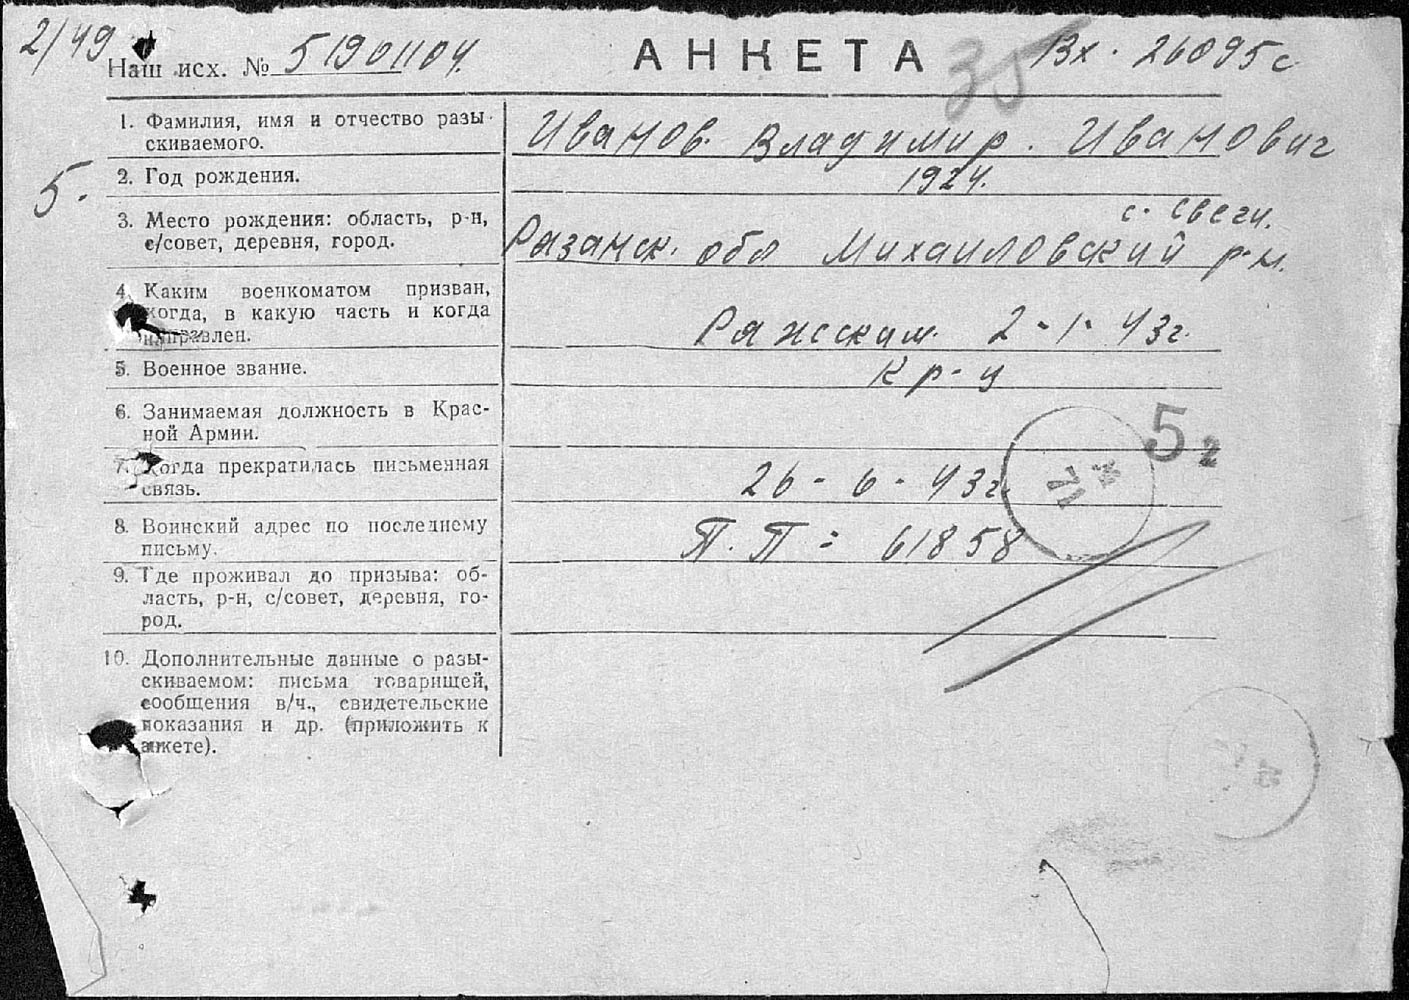 2/49
Наш исх. № 51901104.
АНКЕТА
35
Вх. 26095с
1. Фамилия, имя и отчество разы-
скиваемого.
Иванов. Владимир. Иванович
5.
2. Год рождения.
1924.
3. Место рождения: область, р-н,
с/совет, деревня, город.
с.
Рязанск. обл Михаиловский р-н.
4. Каким военкоматом призван,
когда, в какую часть и когда
направлен.
Ряжским. 2-1-43г.
5. Военное звание.
кр-ц
6. Занимаемая должность в Крас-
ной Армии.
52
7. Когда прекратилась письменная
связь.
26-6-43г.
8. Воинский адрес по последнему
письму.
П.П = 61858
9. Где проживал до призыва: об-
ласть, р-н, с/совет, деревня, го-
род.
10. Дополнительные данные о разы-
скиваемом: письма товарищей,
сообщения в/ч., свидетельские
показания и др. (приложить к
анкете).